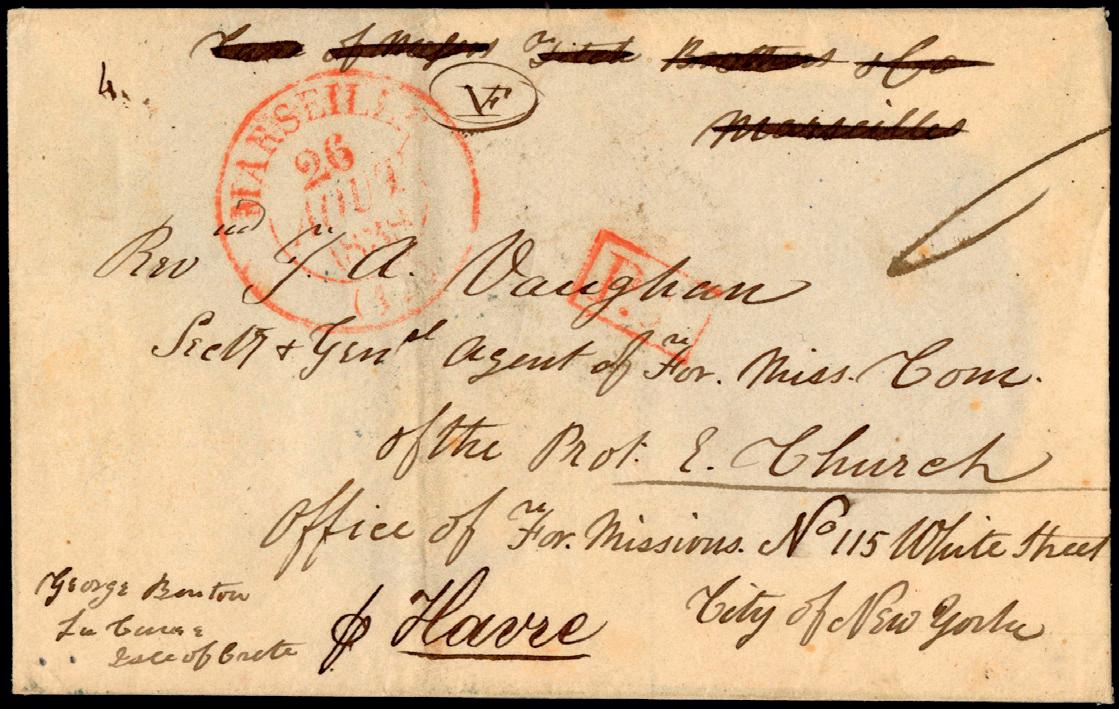 Care of Messrs Fitch Brothers & Co
Marseilles
4
VF
MARSEILLE
26
AOUT
(12)
P.
Revnd J. A. Vaughan
Secty & Genral Agent of For. Miss. Com.
of the Prot. E. Church
Office of For. Missions. No 115 White Street
City of New York
George Benton
Isle of Crete
p Havre